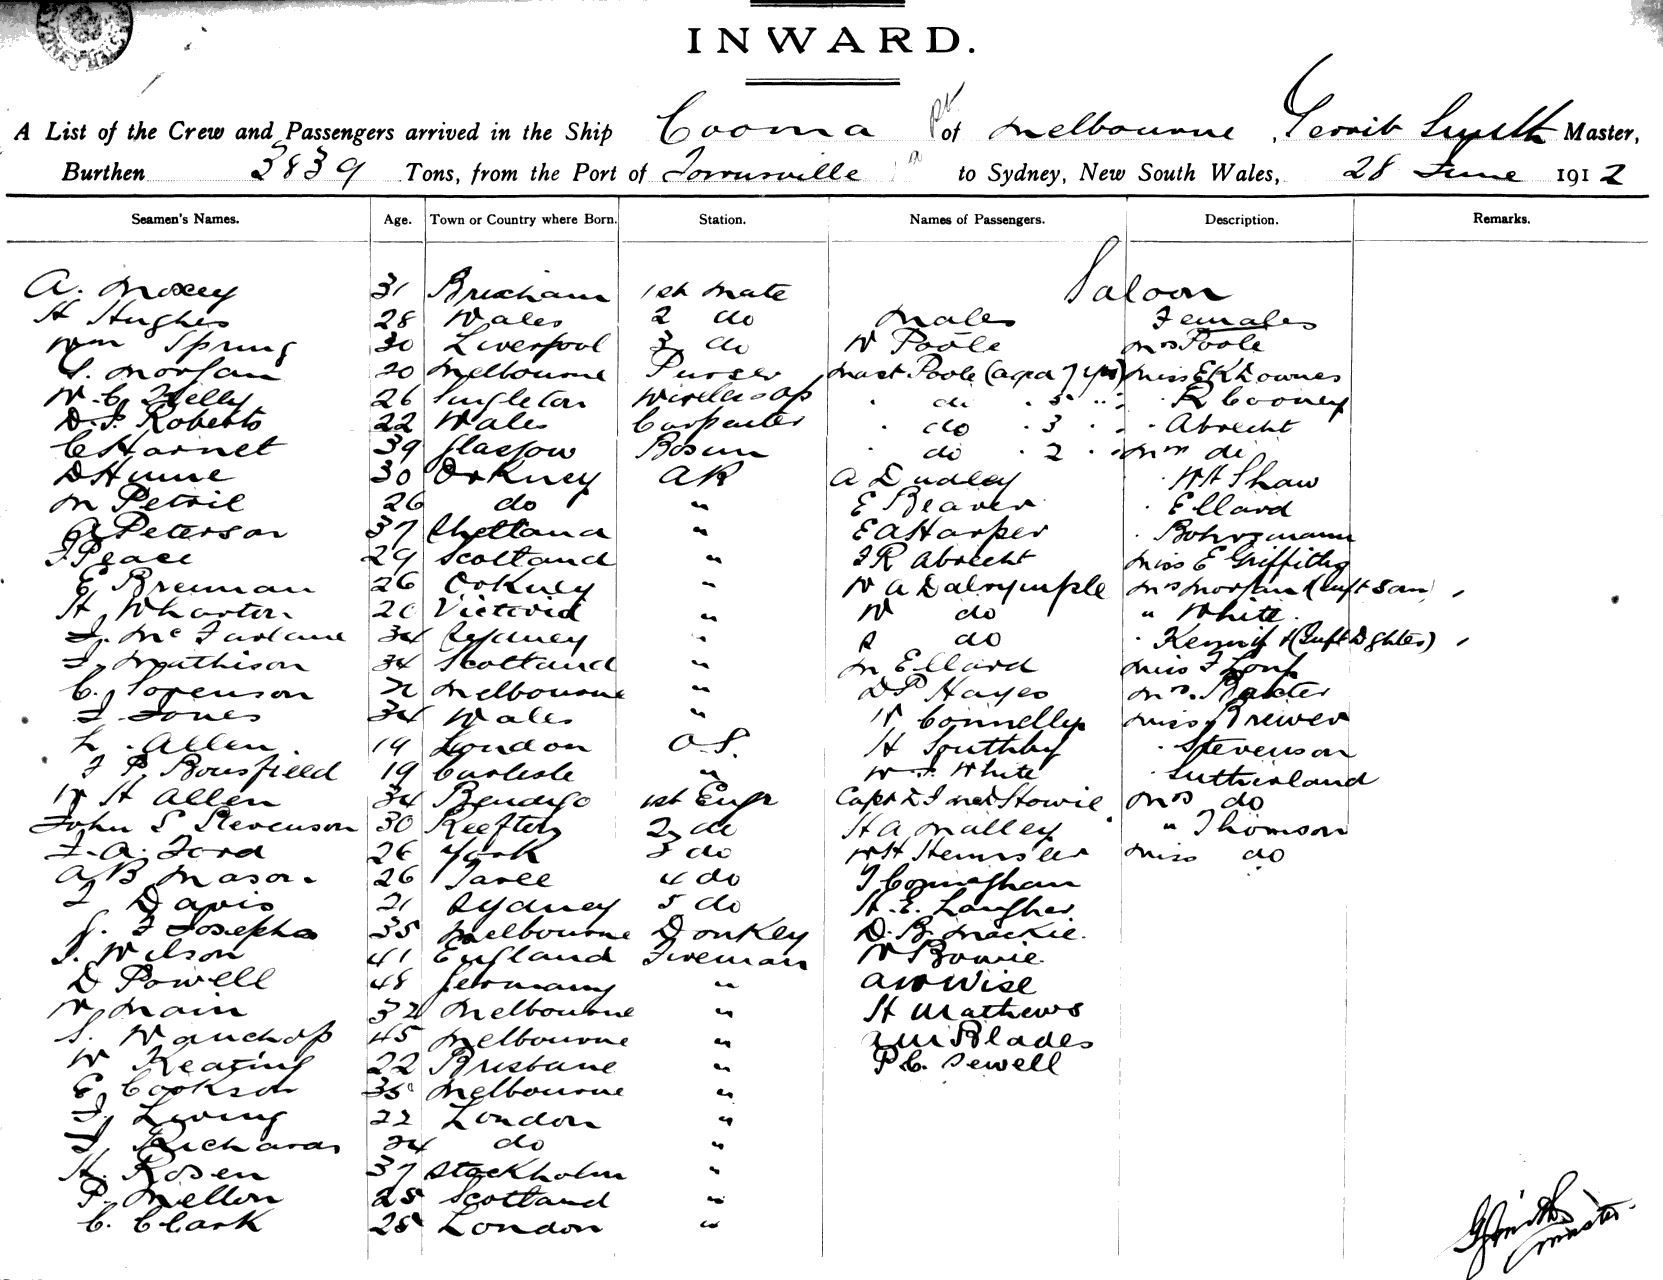 INWARD.
A List of the Crew and Passengers arrived in the Ship Cooma of Melbourne, Gerrit Smith Master,
Burthen 3839 Tons, from the Port of Townsville to Sydney, New South Wales, 28 June 1912
Seamen's Names. Age. Town or Country where Born. Station. Names of Passengers. Description. Remarks.
Saloon
A. Moxey 31 Brixham 1st Mate
H Hughes 28 Wales 2 do Males Females
Wm Spring 30 Liverpool 3 do W Poole Mrs Poole
S. Morgan 20 Melbourne Purser Mast Poole (aged 7 yrs) Miss E K Downes
W. C. Kelly 26 Singleton Wireless Op " do . 5 " " R Cooney
D. J. Roberts 22 Wales Carpenter " do . 3 . . " Abrecht
C Harnet 39 Glasgow Bosun " do . 2 . . Mrs do
D Hume 30 Orkney AB A Dudley " W H Shaw
M Petrie 26 do " E Beaver " Ellard
A Peterson 37 Shetland " E A Harper " Bohrsmann
J Peace 29 Scotland " J R Abrecht Miss E Griffiths
E Brennan 26 Orkney " W A Dalrymple Mrs Morgan (Inft Son)
H Wharton 20 Victoria " W do " White
J. McFarlane 34 Sydney " do " & (Inft Dghter)
J. Mathison 34 Scotland " M Ellard Miss J Long
C. Sorenson Melbourne " D P Hayes Mrs. Baxter
J Jones 34 Wales " W Connelly Miss Brewer
L. Allen 19 London O.S. H Southby " Stevenson
J P Bousfield 19 Carlisle " W J White " Sutherland
W H Allen 34 Bendigo 1st Engr Capt Stowie Mrs do
John S Stevenson 30 Reefton 2 do H A Malley " Thomson
J. A. Ford 26 York 3 do W H Miss do
A B Mason 26 Taree 4 do J
J Davis 21 Sydney 5 do H. E. Laugher
S. J Josephs 35 Melbourne Donkey D. B. Mackie
J. Wilson 41 England Fireman W Bowie
D Powell 48 Germany " A W Wise
W Main 32 Melbourne " H Mathews
S. Wauchop 45 Melbourne " Blades
W Keating 22 Brisbane " P C. Sewell
E. Cookson 35 Melbourne "
J. Living 22 London "
J. Richards 24 do "
H. Rosen 37 Stockholm "
P. Mellon 25 Scotland "
C. Clark 28 London "
G Smith
Master.